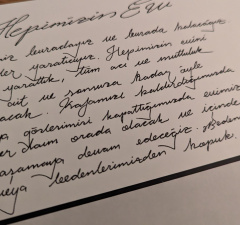 Hepimizin Evi
biz buradayız ve burada kalacağız
er yaratıyoruz. Hepimizin evini
yarattık, tüm acı ve mutluluk
ait ve sonsuza kadar öyle
acak. Kafamızı kaldırdığımızda
gözlerimizi kapattığımızda evimiz
er daim orada olacak ve içinde
yaşamaya devam edeceğiz. Beden
veya bedenlerimizden kopuk.